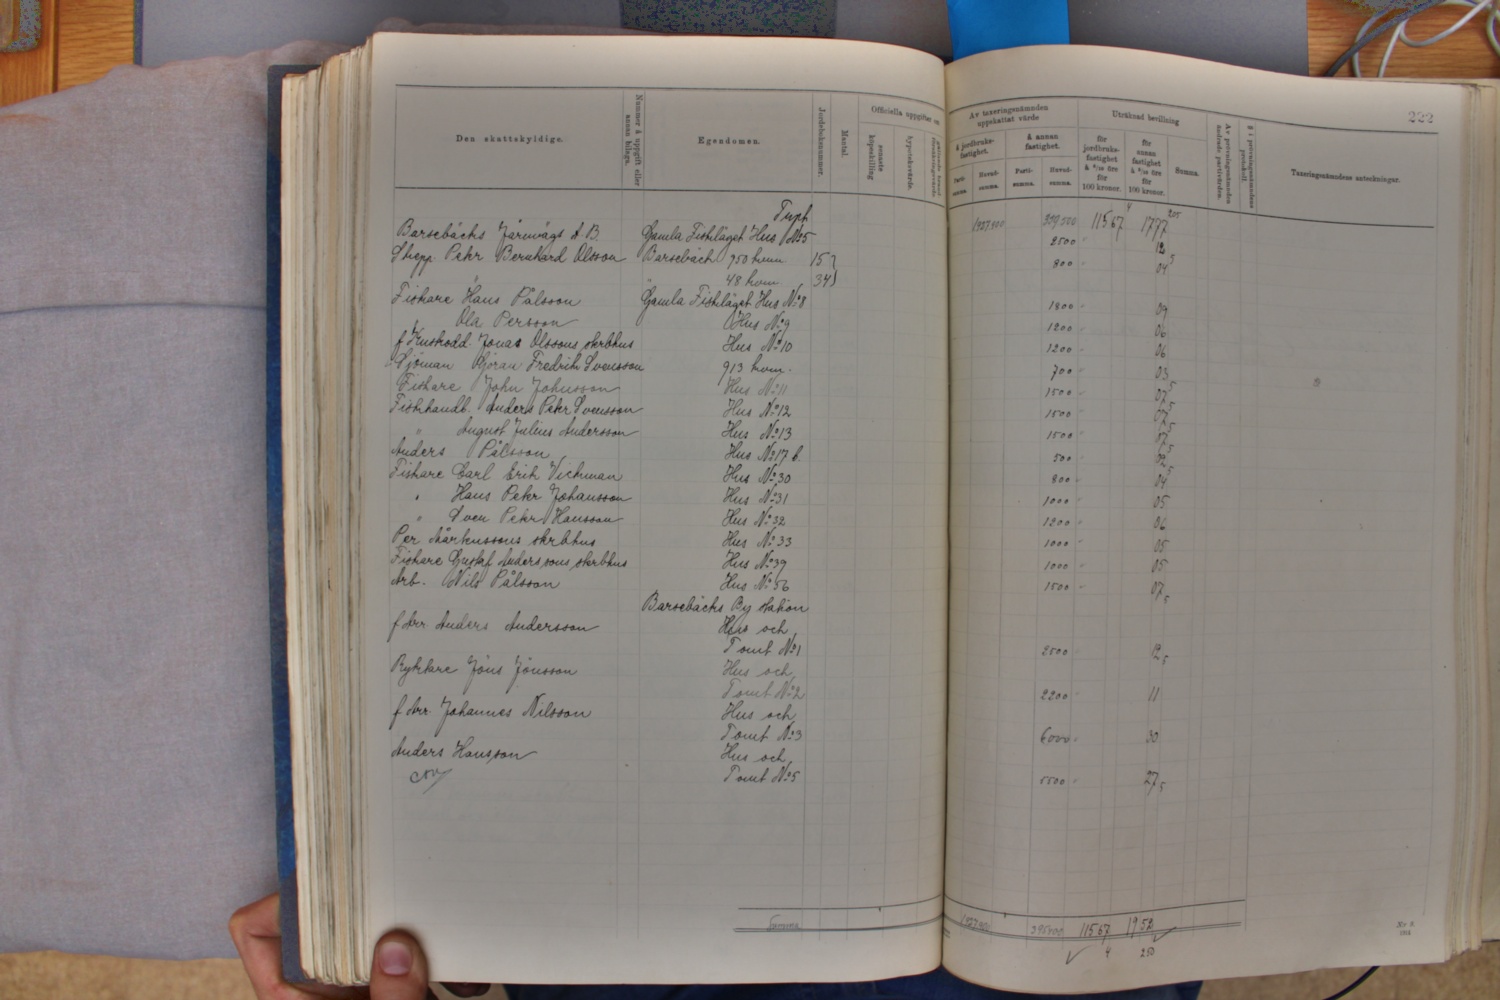 222
Den skattskyldige.
Nummer å uppgift eller annan bilaga.
Egendomen.
Jordeboksnummer.
Mantal.
Officiella uppgifter om
senaste köpeskilling
hypoteksvärde.
Av taxeringsnämnden uppskattat värde
å jordbruks-fastighet.
å annan fastighet.
Parti-summa.
Huvud-summa.
Parti-summa.
Huvud-summa.
Uträknad bevillning
för jordbruks-fastighet å 6/10 öre för 100 kronor.
för annan fastighet å 5/10 öre för 100 kronor.
Summa.
Taxeringsnämndens anteckningar.
Trpt 1927,500 389,500 115,67 4 1777 205
Barsebäcks Järnvägs A.B. Gamla Fiskläget Hus No 5 2500 " 12 5
Skepp. Petr Bernhard Olsson Barsebäck 950 kvm 15 800 " 04
48 kvm. 34
Fiskare Hans Pålsson Gamla Fiskläget Hus No 8 1800 " 09
" Ola Persson Hus No 9 1200 " 06
f. Kustrodd. Jonas Olssons sterbhus Hus No 10 1200 " 06
Sjöman Göran Fredrik Svensson 913 kvm. 700 " 03 5
Fiskare John Johnsson Hus No 11 1500 " 07 5
Fiskhandl. Anders Petr Svensson Hus No 12 1500 " 07 5
" August Julius Andersson Hus No 13 1500 " 07 5
Anders Pålsson Hus No 17 b. 500 " 02 5
Fiskare Carl Erik Vickman Hus No 30 800 " 04
" Hans Petr Johansson Hus No 31 1000 " 05
" Sven Petr Hansson Hus No 32 1200 " 06
Per Mårtenssons sterbhus Hus No 33 1000 " 05
Fiskare Gustaf Anderssons sterbhus Hus No 39 1000 " 05
Arb. Nils Pålsson Hus No 56 1500 " 07 5
Barsebäcks By station
f. Arr. Anders Andersson Hus och
Tomt No 1 2500 " 12 5
Ryktare Jöns Jönsson Hus och
Tomt No 2 2200 " 11
f. Arr. Johannes Nilsson Hus och
Tomt No 3 6000 " 30
Anders Hansson Hus och
Tomt No 5 5500 " 27 5
Summa 115 67 19 52
4 250